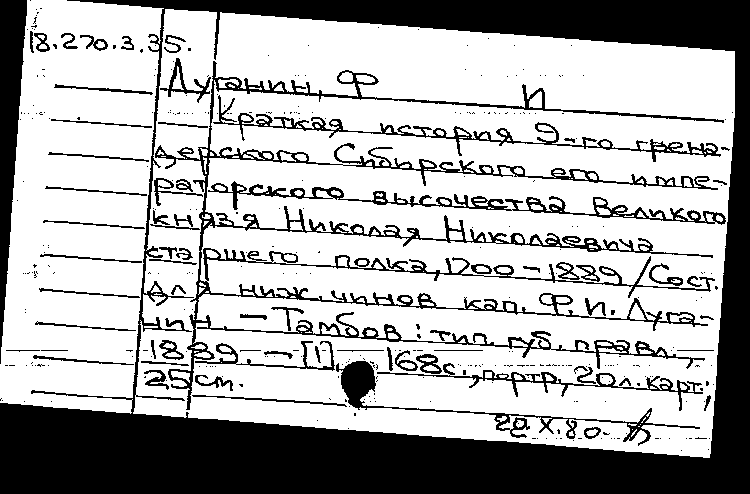 18.270.3.35.
Луганин, Ф И
Краткая история 9-го грена-
дерского Сибирского его импе-
раторского высочества Великого
князя Николая Николаевича
старшего полка, 1700-1889/Сост.
для ниж. чинов кап. Ф.И. Луга-
нин. - Тамбов: тип. губ. правл.,
1889. - [1], 168с., портр., 20л. карт;
25см.
22.X.80.